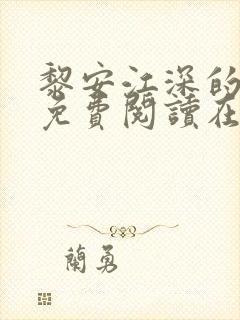 黎安江深的
免費閱讀在
蘭勇